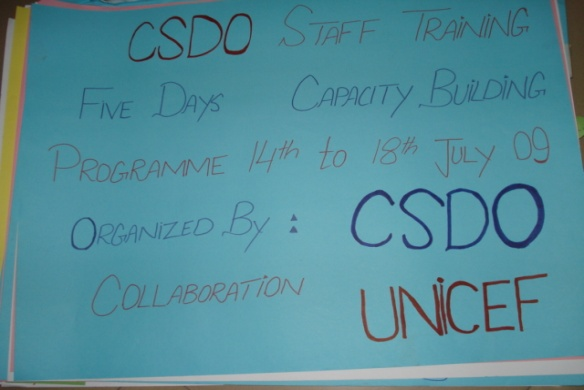 CSDO STAFF TRAINING
FIVE DAYS CAPACITY BUILDING
PROGRAMME 14th to 18th JULY 09
ORGANIZED BY : CSDO
COLLABORATION UNiCEF